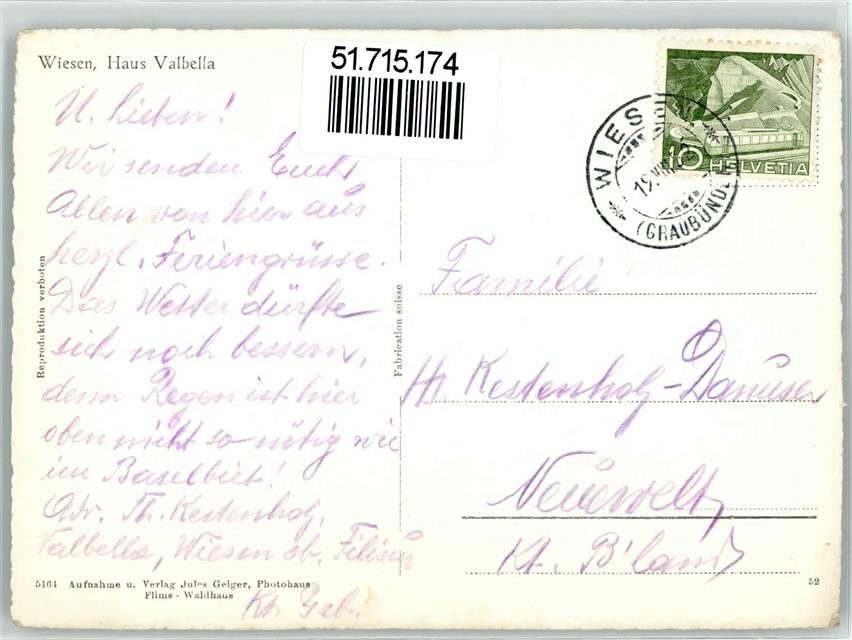 Wiesen, Haus Valbella
51.715.174
U. Lieben!
Wir senden Euch
Allen von hier aus
herzl. Feriengrüsse.
Das Wetter dürfte
sich noch bessern,
denn Regen ist hier
oben nicht so nötig wie
im Baselbiet!
Adr. Th. Kestenholz,
Valbella, Wiesen ob. Filisur
Kt. Grb.
Reproduktion verboten
Fabrication suisse
10 HELVETIA
WIESEN
19. VII.
(GRAUBÜNDEN)
Familie
Hr. Kestenholz-Danuser
Neuewelt,
Kt. B'land
5164 Aufnahme u. Verlag Jules Geiger, Photohaus
Flims - Waldhaus
52